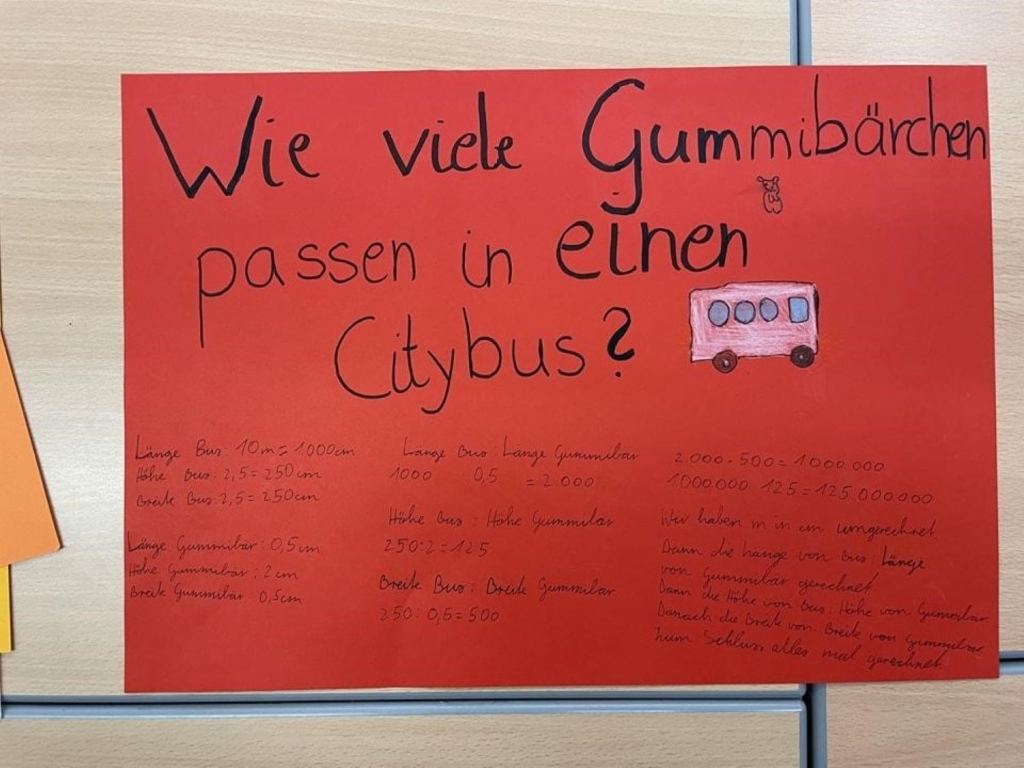 Wie viele Gummibärchen
passen in einen
Citybus?
Länge Bus: 10m = 1000cm
Höhe Bus: 2,5 = 250cm
Breite Bus: 2,5 = 250cm
Länge Gummibär: 0,5cm
Höhe Gummibär: 2cm
Breite Gummibär: 0,5cm
Länge Bus : Länge Gummibär
1000 0,5 = 2.000
Höhe Bus : Höhe Gummibär
250:2=125
Breite Bus : Breite Gummibär
250:0,5=500
2.000 · 500 = 1.000.000
1000.000 · 125 = 125.000.000
Wir haben m in cm umgerechnet
Dann die Länge von Bus : Länge
von Gummibär gerechnet
Dann die Höhe von Bus : Höhe von Gummibär
Danach die Breite von Breite von Gummibär
Zum Schluss alles mal gerechnet.